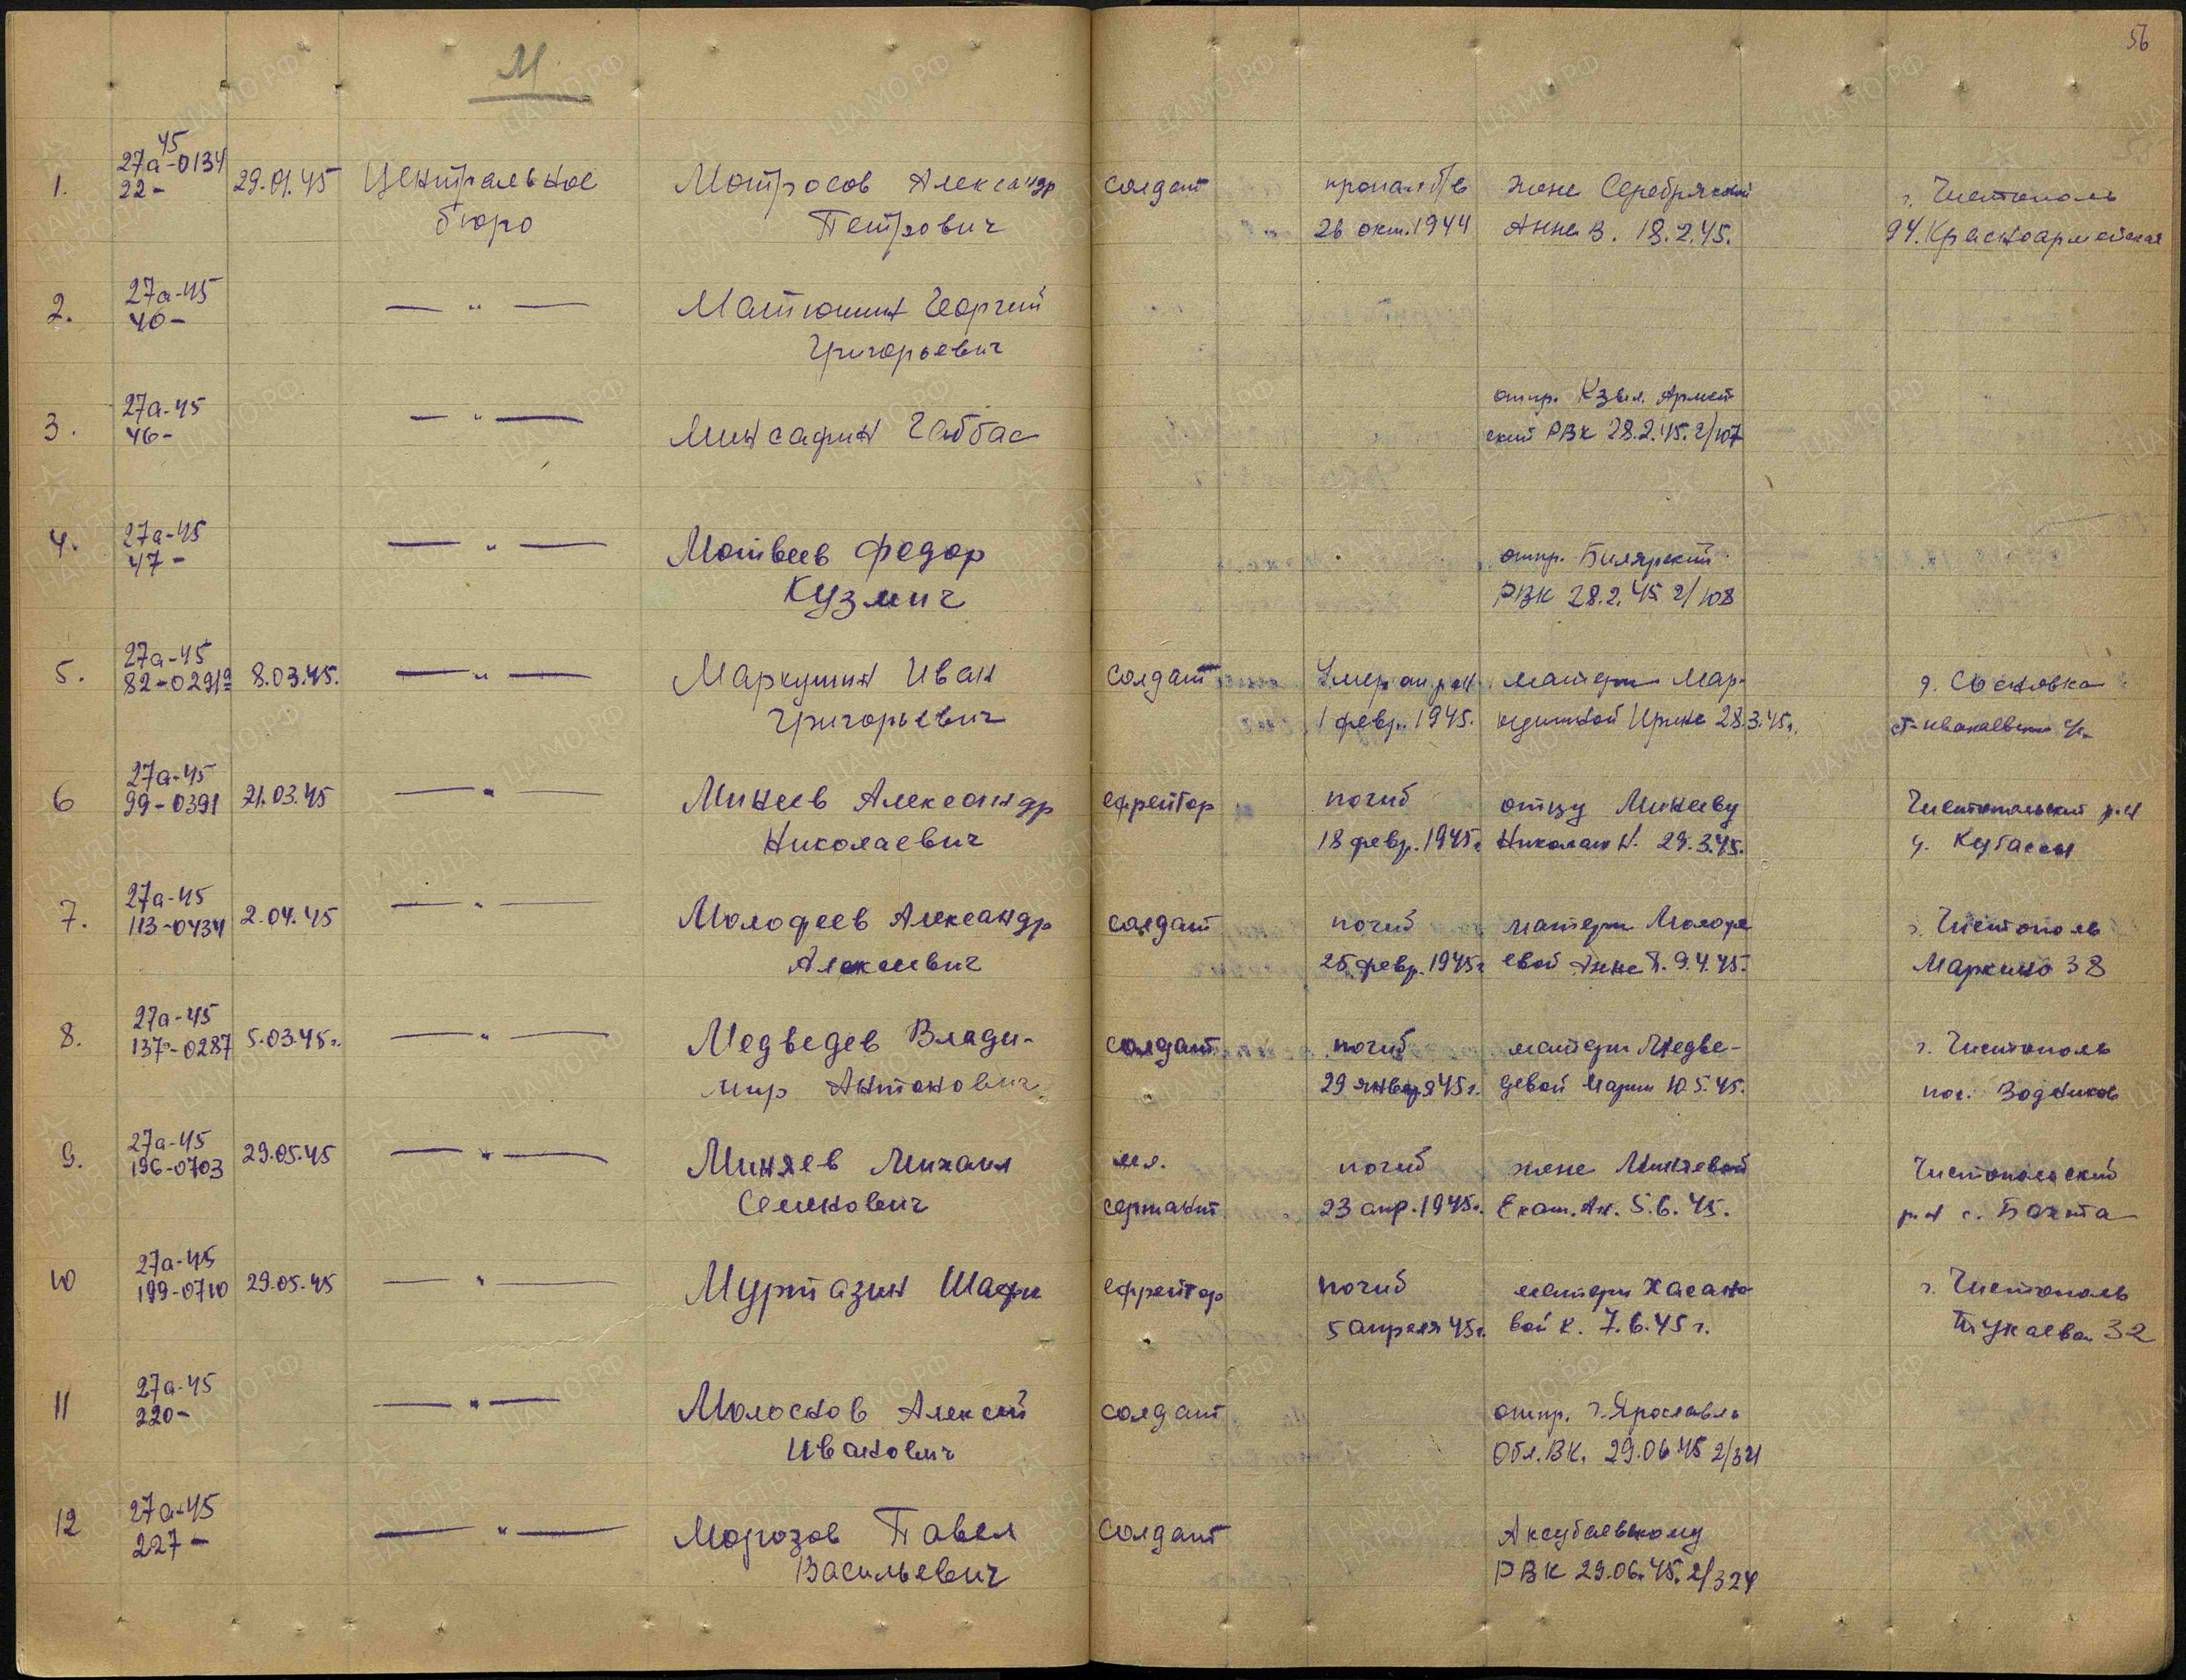 М
56
45
1. 27а-0134 29.01.45 Центральное Матросов Александр солдат пропал б/в жене Серебряковой г. Чистополь
22- бюро Петрович 26 окт. 1944 Анне В. 18.2.45. 94. Красноармейская
2. 27а-45 — " — Матюшин Георгий
40- Григорьевич
отпр. Кзыл. Армей
3. 27а-45 — " — Минсафин Габбас ский РВК 28.2.45. 2/107
46-
4. 27а-45 — " — Матвеев Федор отпр. Билярский
47- Кузмич РВК 28.2.45 2/108
5. 27а-45 8.03.45. — " — Маркушин Иван солдат Умер от ран матери Мар- д. Сосновка
82-0291а Григорьевич 1 февр. 1945. Ирине 28.3.45г.
6 27а-45 21.03.45 — " — Минеев Александр ефрейтор погиб отцу Минееву Чистопольский р-н
99-0391 Николаевич 18 февр. 1945г. Николаю Н. 29.3.45. Кубассы
7. 27а-45 2.04.45 — " — Молофеев Александр солдат погиб матери Молофе г. Чистополь
113-0434 Алексеевич 25 февр. 1945г. евой Анне 9.4.45. Маркина 38
8. 27а-45 5.03.45г. — " — Медведев Влади- солдат погиб матери Медве- г. Чистополь
137-0287 мир Антонович 29 января 45г. девой Марии 10.5.45. пос. Водников
9. 27а-45 29.05.45 — " — Миняев Михаил мл. погиб жене Миняевой Чистопольский
196-0703 Семенович сержант 23 апр. 1945г. Екат. Ан. 5.6.45. р-н с. Бахта
10 27а-45 29.05.45 — " — Муртазин Шафи ефрейтор погиб матери Хасано г. Чистополь
199-0710 5 апреля 45г. вой К. 7.6.45г. Тукаева 32
11 27а-45 — " — Молоснов Алексей солдат отпр. г. Ярославль
220- Иванович Обл. ВК. 29.06.45 2/321
12 27а-45 — " — Морозов Павел солдат Аксубаевскому
227- Васильевич РВК 29.06.45. 2/324